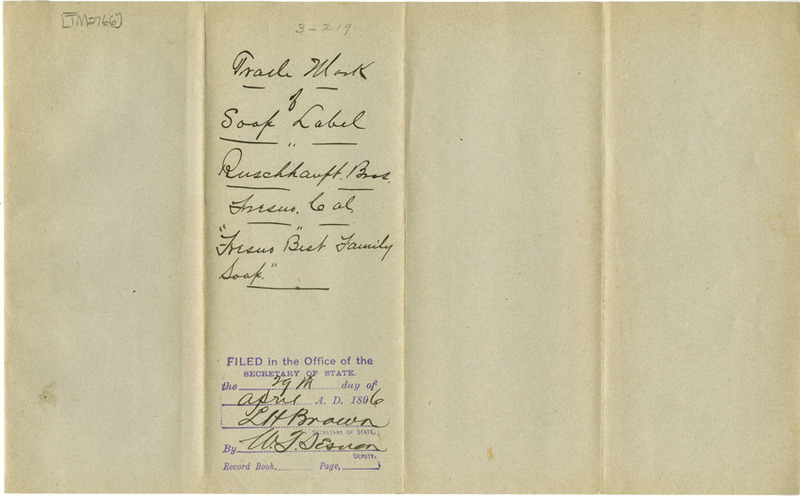 [TM2766]
3-219
Trade Mark
of
Soap Label
"
Ruschhaupt. Bros.
Fresno. Cal.
"Fresno "Best Family
Soap."
FILED in the Office of the
SECRETARY OF STATE.
the 29th day of
April A. D. 1896
L H Brown
SECRETARY OF STATE.
By W. T.
DEPUTY.
Record Book, Page,